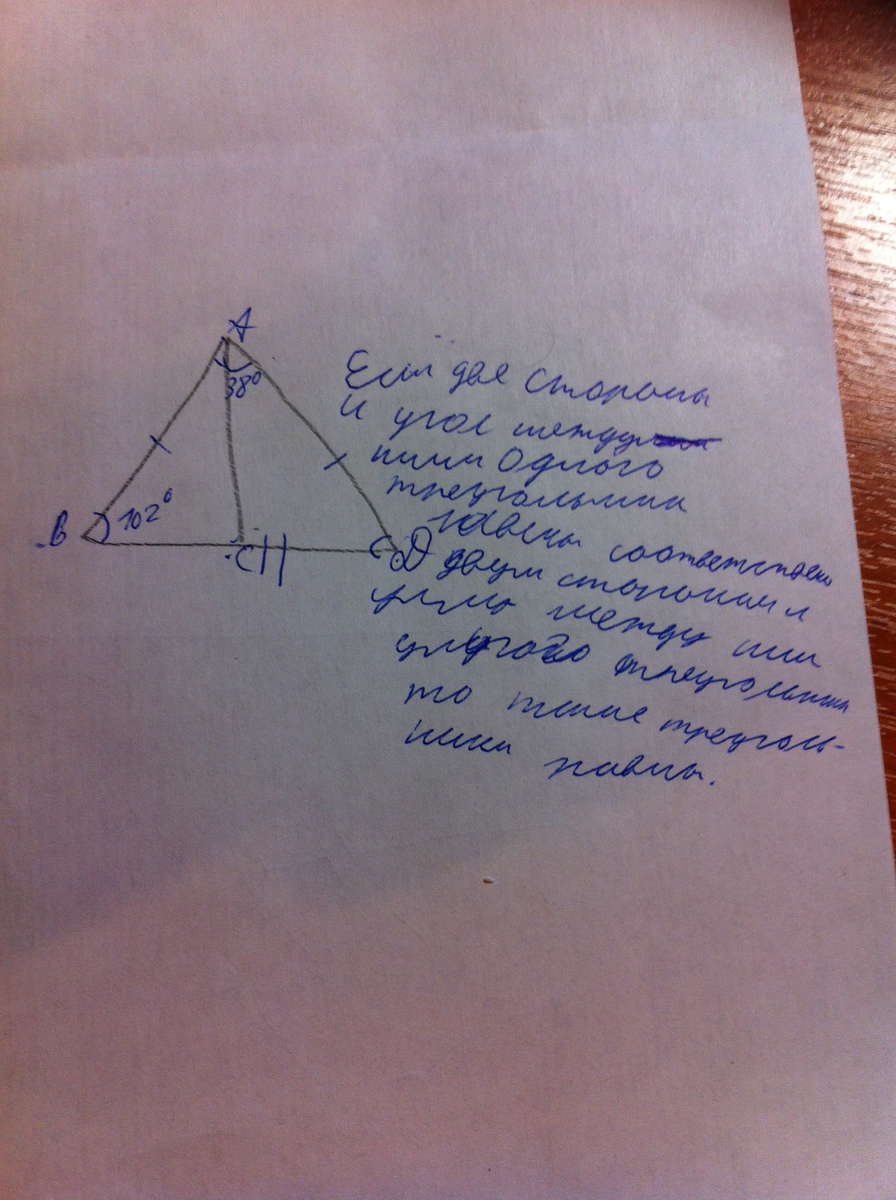 A
38°
B
102°
C
D
Если две стороны
и угол между
ними одного
треугольник
равны соответствено
двум сторонам и
углу между ними
другого треугольника
то такие треуголь-
ники равны.